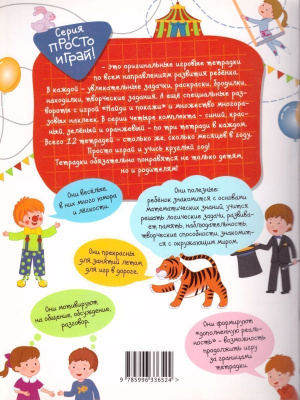 Серия
ПРОСТО
играй!
– это оригинальные игровые тетрадки
по всем направлениям развития ребёнка.
В каждой – увлекательные задачи, раскраски, бродилки,
находилки, творческие задания. А ещё специальные раз-
вороты с игрой «Найди и покажи» и множество многора-
зовых наклеек. В серии четыре комплекта – синий, крас-
ный, зелёный и оранжевый – по три тетради в каждом.
Всего 12 тетрадей – столько же, сколько месяцев в году.
Просто играй и учись круглый год!
Тетрадки обязательно понравятся не только детям,
но и родителям!
Они весёлые,
в них много юмора
и лёгкости.
Они полезные:
ребёнок знакомится с основами
математических знаний, учится
решать логические задачи, развива-
ет память, наблюдательность,
творческие способности, знакомит-
ся с окружающим миром.
Они прекрасны
для занятий летом,
для игр в дороге.
Они мотивируют
на общение, обсуждение,
разговор.
Они формируют
«дополненную реаль-
ность» – возможность
продолжить игру
за границами
тетрадки.
9 785996 336524 >